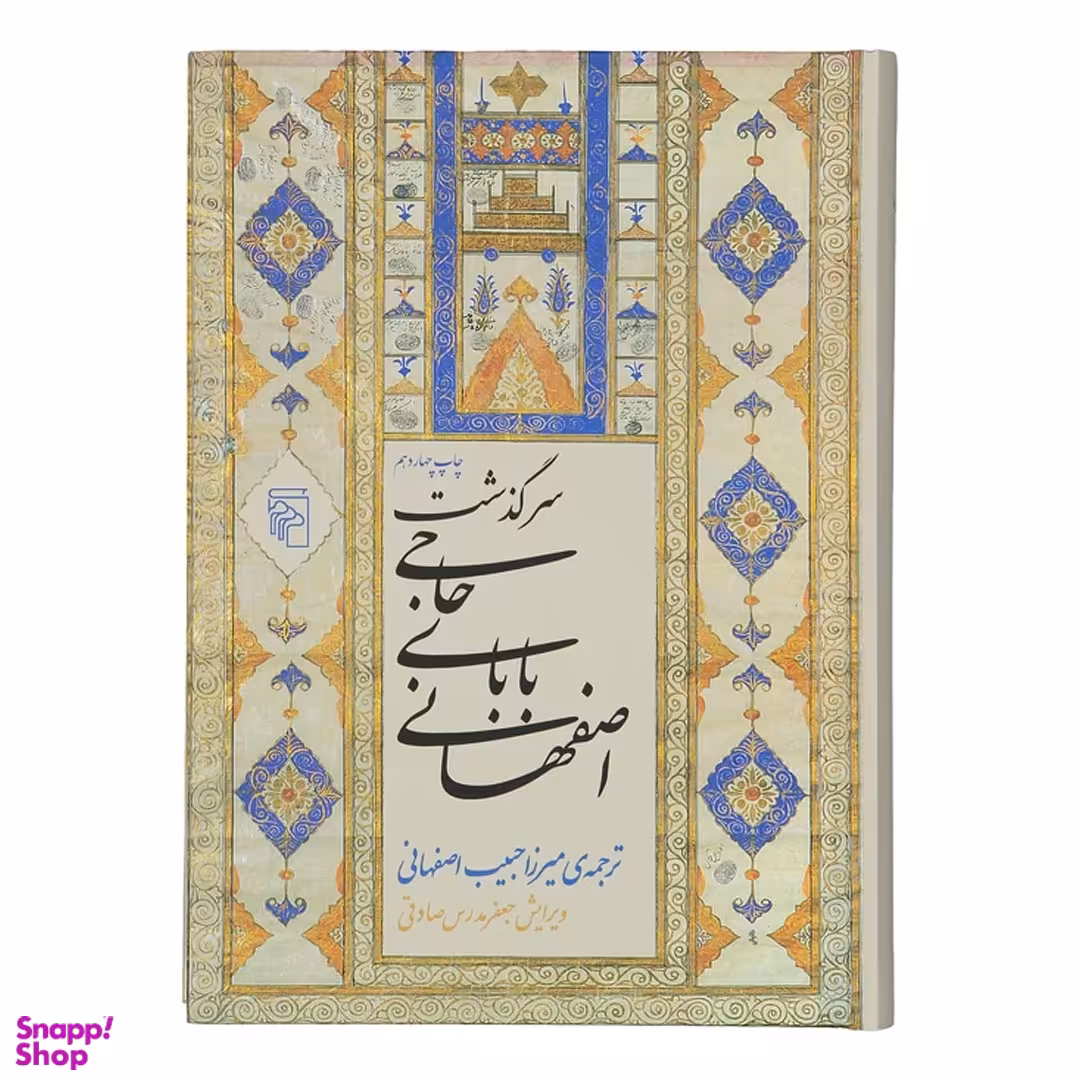 چاپ چهاردهم
سرگذشت
حاجی
بابای
اصفهانی
ترجمه‌ی میرزا حبیب اصفهانی
ویرایش جعفر مدرس صادقی
Snapp!
Shop